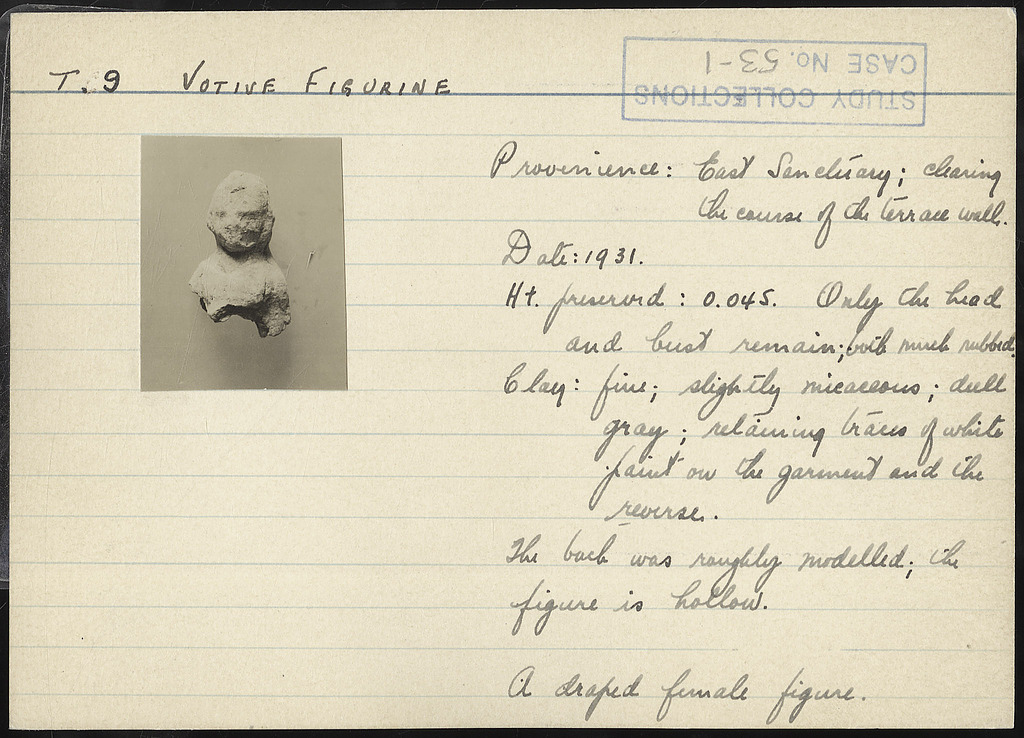 T. 9 VOTIVE FIGURINE
STUDY COLLECTIONS
CASE No. 53-1
Provenience: East Sanctuary; clearing
the course of the terrace wall.
Date: 1931.
Ht. preserved: 0.045. Only the head
and bust remain; both much rubbed.
Clay: fine; slightly micaceous; dull
gray; retaining traces of white
paint on the garment and the
reverse.
The back was roughly modelled; the
figure is hollow.
A draped female figure.